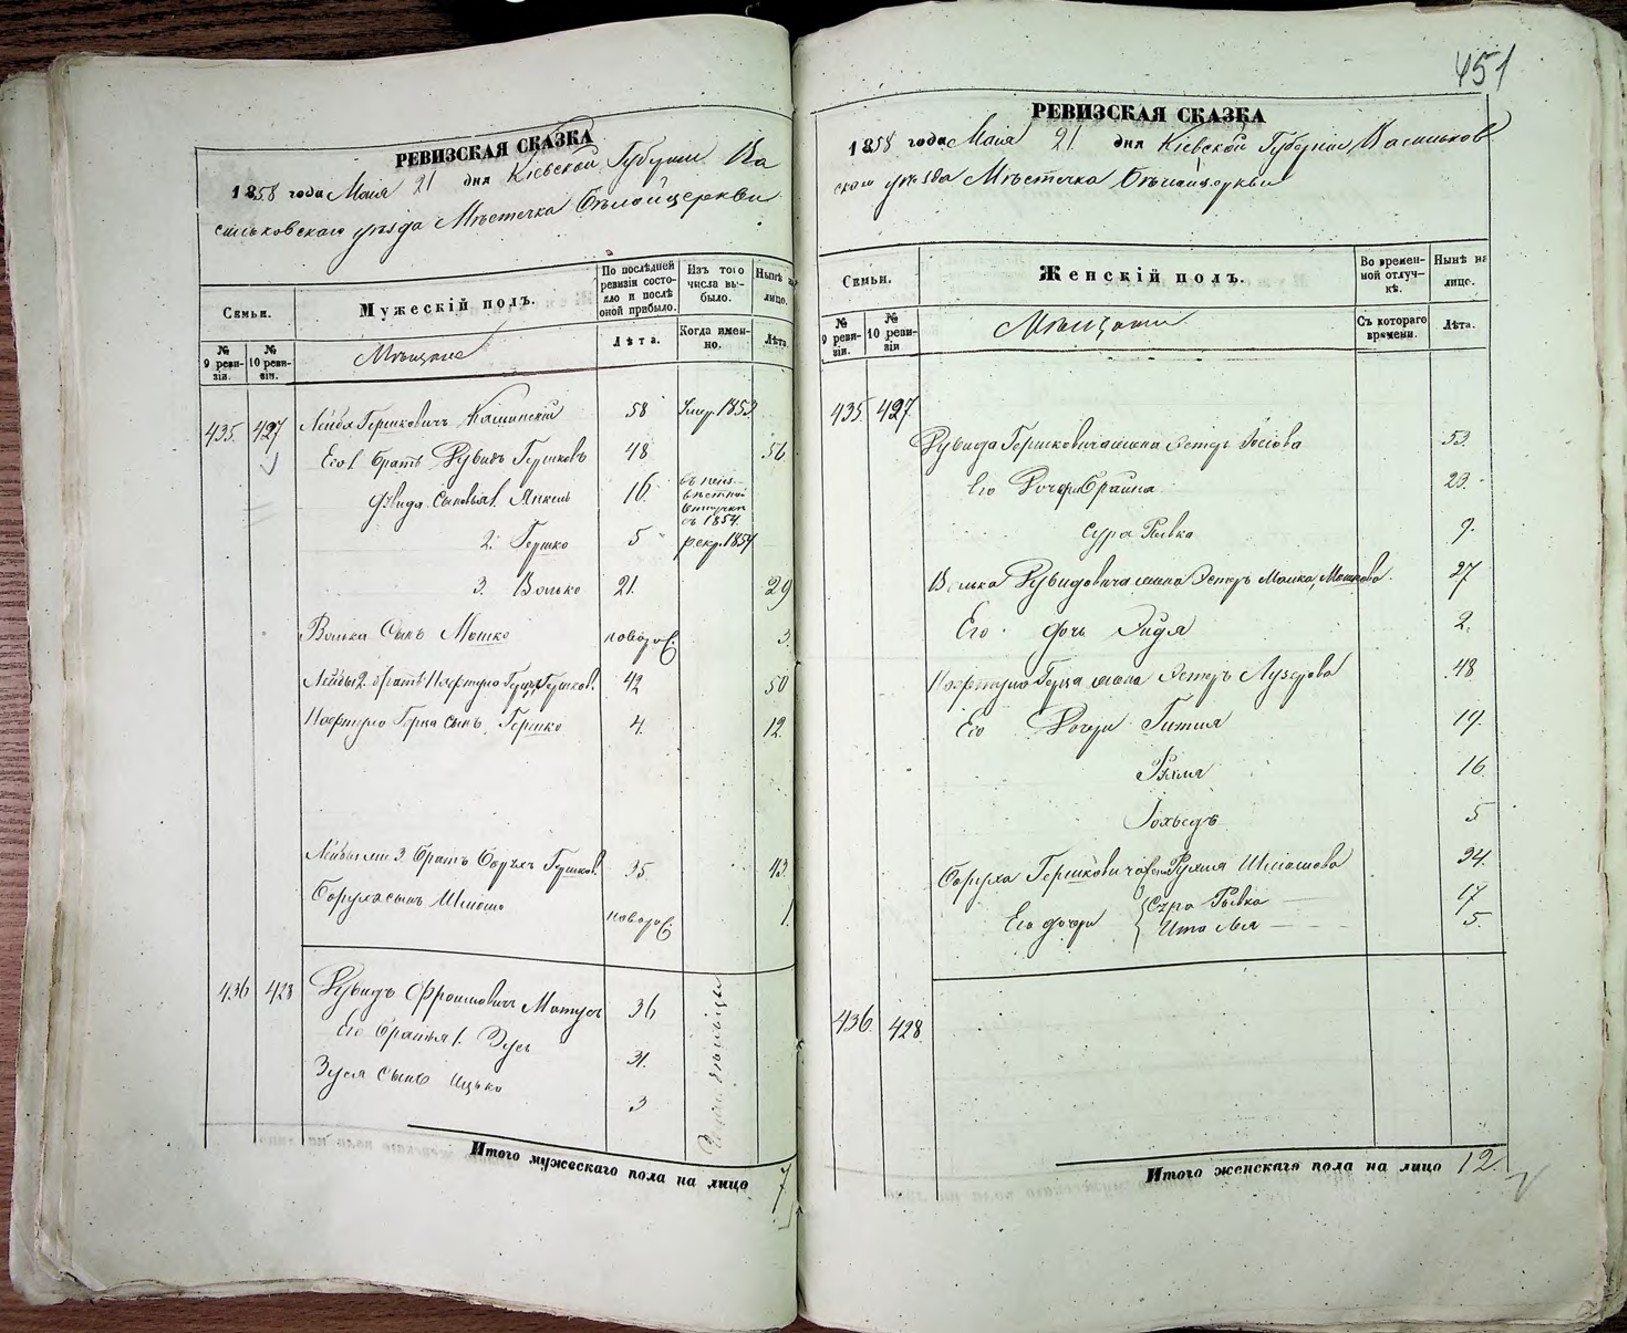 РЕВИЗСКАЯ СКАЗКА
1858 года Маія 21 дня Кіевской Губерніи Ва
сильковскаго уѣзда Мѣстечка Бѣлойцеркви
Семьи.
Мужескій полъ.
По послѣдней ревизіи состояло и послѣ оной прибыло.
Изъ того числа выбыло.
Нынѣ на лицо.
№ 9 ревизіи.
№ 10 ревизіи.
Мѣщане
Лѣта.
Когда именно.
Лѣта.
435. 427 Лейба Гершковичъ 58 Умер. 1853
Его 1 братъ Дувидъ Гершковъ 48 56
Дувида сыновья 1. Янкель 16. въ неизвѣстной отлучкѣ съ 1854.
2. Гершко 5 рекр. 1854
3. Волько 21. 29
Волька Сынъ Мошко новорож. 3.
Лейбы 2. братъ Нафтула Герцъ Гершков. 42 50
Нафтула Герца сынъ Гершко 4. 12.
Лейбы 3. братъ Борухъ Гершков. 35 43.
Боруха сынъ новорож. 1.
436 428 Дувидъ 36
Его братья 1. Зусь 31.
Зуся Сынъ Ицько 3
Итого мужескаго пола на лицо 7
451
РЕВИЗСКАЯ СКАЗКА
1858 года Маія 21 дня Кіевской Губерніи Васильков
скаго уѣзда Мѣстечка Бѣлойцеркви
Семьи.
Женскій полъ.
Во временной отлучкѣ.
Нынѣ на лицо.
№ 9 ревизіи.
№ 10 ревизіи
Мѣщане
Съ котораго времени.
Лѣта.
435. 427
Дувида Гершковича жена Эстеръ Іосіова 53.
Его Дочери Брайна 23.
Сура Ривка 9.
Волька Дувидовича жена Эстеръ Малка Мошкова. 27
Его дочь Эйдя 2.
Нафтула Герца жена Эстеръ Лузерова 48
Его Дочери Гитля 19.
16.
Іохведъ 5
Боруха Гершковича жена Рухля 34.
Его дочери Сура Ривка 17
Ита Лея 5.
436. 428
Итого женскаго пола на лицо 12.